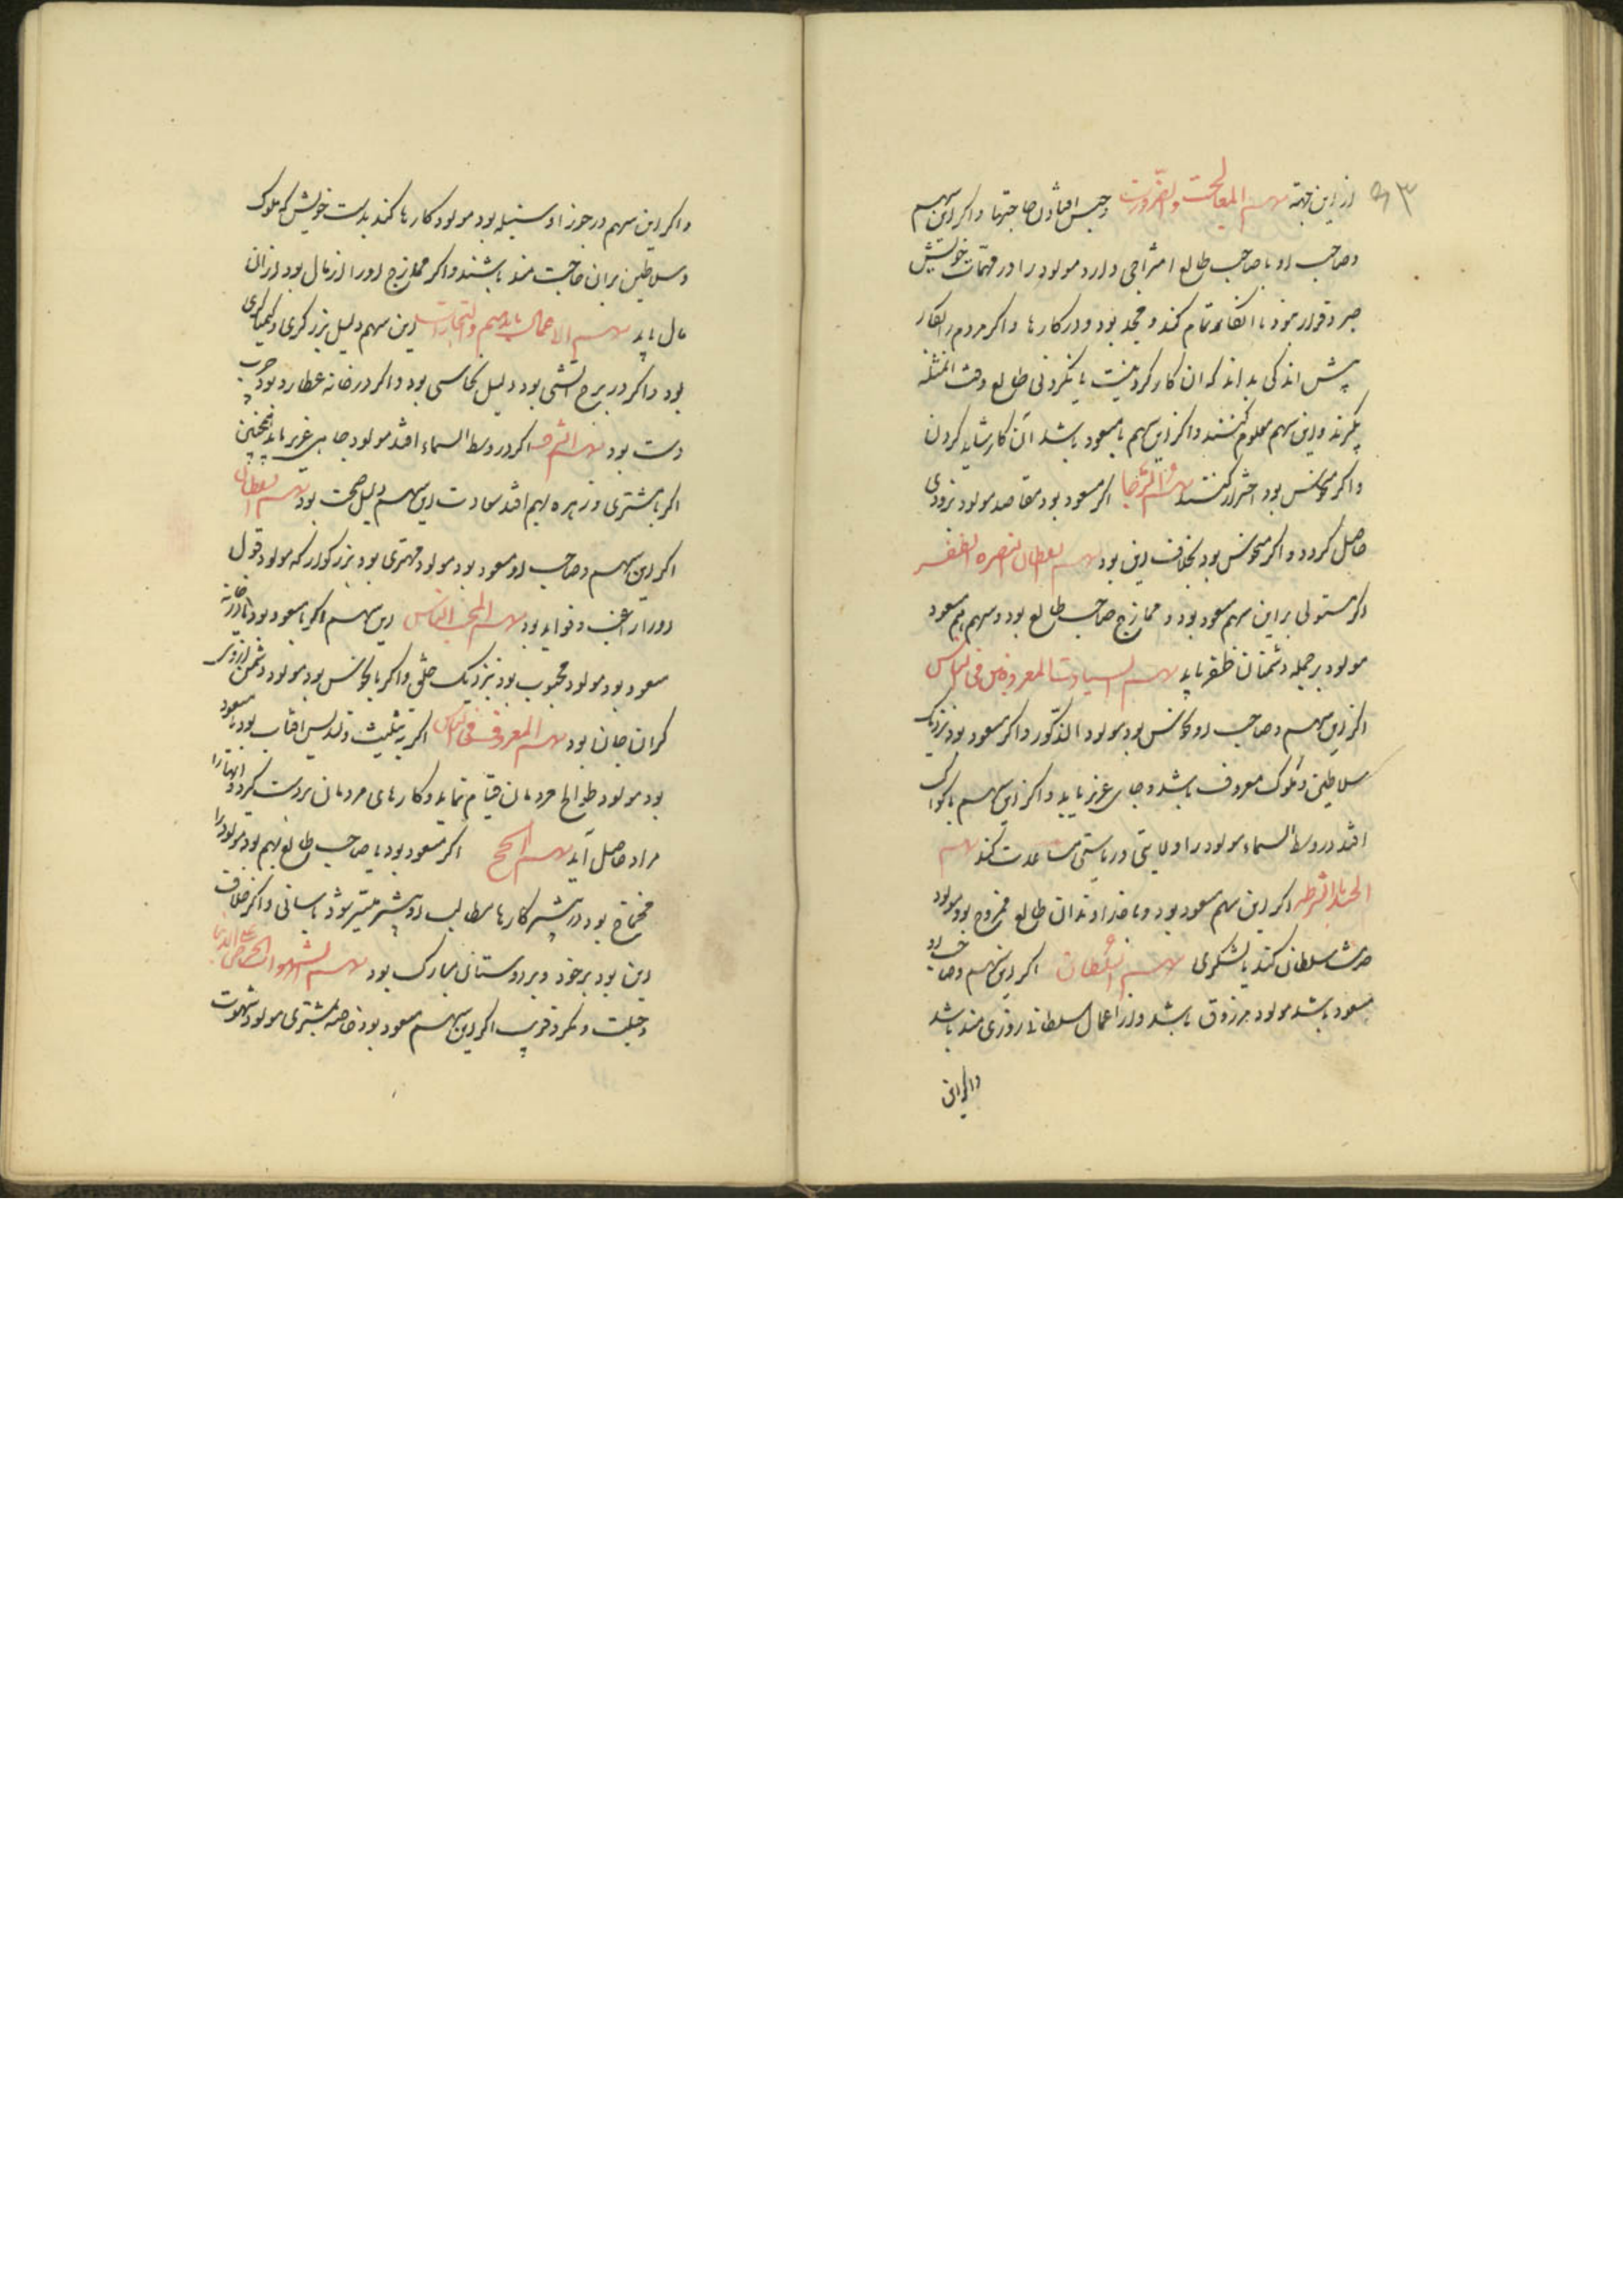 از این جهة سهم المعالجت والضرورت و حبس افتادن حاجتها و اکر این سهم
و صاحب او با صاحب طالع امتزاجی دارد مولود را در مهمات خویش
صبر و قرار نبود تا آنکاه تمام کند و مجد بود در کارها و اکر مردم
پیش اندکی بداند که ان کار کردنیست یا نکردنی طالع وقت
بکیرند و این سهم معلوم کنند و اکر این سهم با مسعود باشد آن کار شاید کردن
و اکر منحوس بود احتراز کنند سهم اکر مسعود بود مقاصد مولود بزودی
حاصل کردد و اکر منحوس بود بخلاف این بود سهم السلطان النصره الظفر
اکر مستولی بر این سهم مسعود بود و ممازج صاحب طالع بود و سهم هم مسعود
مولود بر جمله دشمنان ظفر یابد سهم السیادت المعروفین فی الناس
اکر این سهم و صاحب او منحوس بود مولود و اکر مسعود بود نزدیک
سلاطین و ملوک معروف باشد و جای عزیز یابد و اکر این سهم با کواکب
افتد در وسط السماء مولود را ولایتی و ریاستی مساعدت کند سهم
الجند و الشرطه اکر این سهم مسعود بود و با خداوندان طالع ممزوج بود مولود
خدمت سلطان کند یا لشکری سهم السلطان اکر این سهم و صاحب او
مسعود باشد مولود مرزوق باشد و از اعمال سلطانی روزی مند باشد
و اکر این
و اکر این سهم در جوزا و سنبله بود مولود کارها کند بدست خویش که ملوک
و سلاطین بران حاجت مند باشند و اکر ممازج او را از مال بود از ان
مال یابد سهم الاعمال بایدیهم و التجارات این سهم دلیل زرکری و کیمیاکری
بود و اکر در برج آتشی بود دلیل نحاسی بود و اکر در خانه عطارد بود چرب
دست بود سهم الشرف اکر در وسط السماء افتد مولود جاهی عزیز یابد همچنین
اکر با مشتری و زهره بهم افتد سعادت این سهم دلیل صحت بود سهم السلطان
اکر این سهم و صاحب او مسعود بود مولود مهتری بود بزرکوار که مولود قول
او را راغب و فواید بود سهم المحب الناس این سهم اکر با مسعود بود یا در خانه
مسعود بود مولود محبوب بود نزدیک خلق و اکر با نحوس بود مولود دشمن روی
کران جان بود سهم المعروف فی الناس اکر به تثلیث و تسدیس افتاب بود یا مسعود
بود مولود طوالع مردمان قیام نماید و کارهای مردمان بردست کیرد و انها را
مراد حاصل آید سهم الحج اکر مسعود بود با صاحب طالع بهم بود مولود را
محتاج بود در بیشتر کارها مطالب او بیشتر میسر شود باسانی و اکر خلاف
این بود بر خود و بر دوستان مبارک بود سهم الشهوات الحرص علی الدنیا
و حیلت و مکر و فریب اکر این سهم مسعود بود خاصه بمشتری مولود شهوت